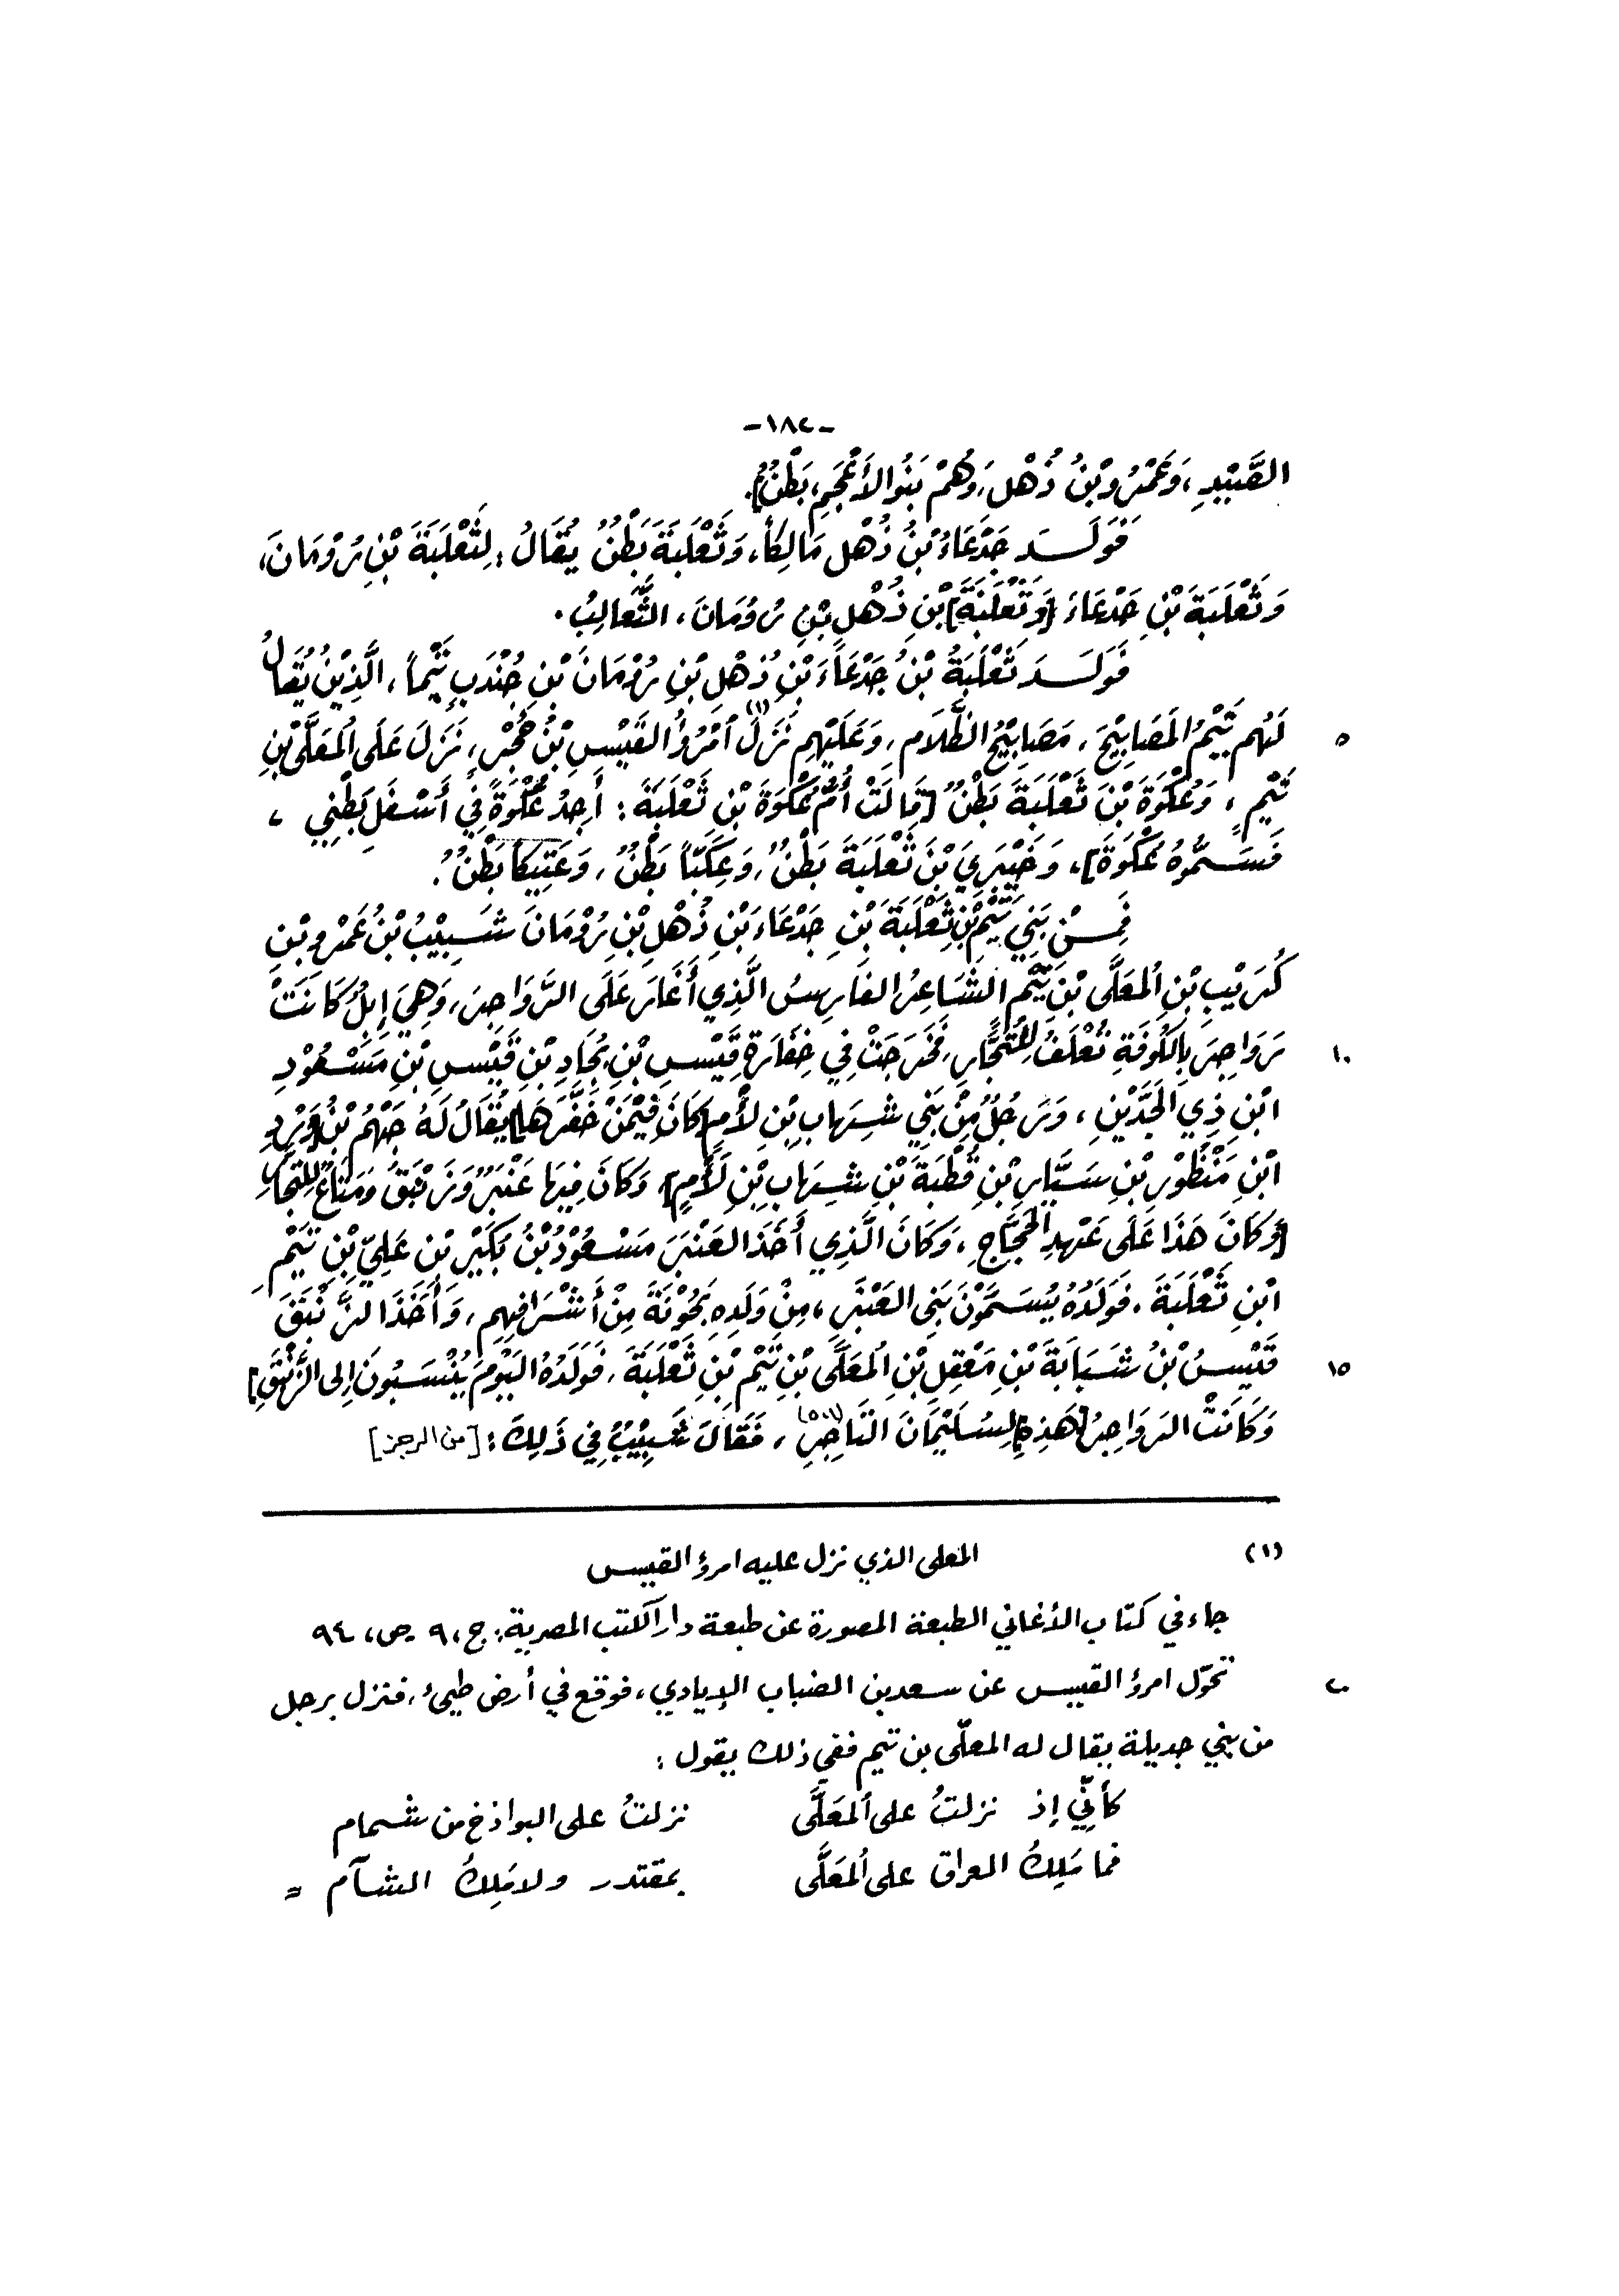 -١٨٢-
الصَّيْدِ، وَعَمْرُو بْنُ ذُهْلٍ، وَهُمْ بَنُو الأَعْجَمِ، بَطْنٌ].
فَوَلَدَ جَدْعَاءُ بْنُ ذُهْلٍ مَالِكاً، وَثَعْلَبَةَ بَطْنٌ يُقَالُ: لِثَعْلَبَةَ بْنِ رُوْمَانَ،
وَثَعْلَبَةَ بْنِ جَدْعَاءَ [وَثَعْلَبَةَ] بْنِ ذُهْلِ بْنِ رُوْمَانَ، الثَّعَالِبُ.
فَوَلَدَ ثَعْلَبَةُ بْنُ جَدْعَاءَ بْنِ ذُهْلِ بْنِ رُوْمَانَ بْنِ جُنْدَبٍ تَيْماً، الَّذِيْنَ يُقَالُ
٥ لَهُم تَيْمُ المَصَابِيْحَ، مَصَابِيْحُ الظَّلَامِ، وَعَلَيْهِم نَزَلَ (١) امْرُؤُ القَيْسِ بْنُ حُجْرٍ، نَزَلَ عَلَى المُعَلَّى بْنِ
تَيْمٍ، وَعُكْوَةَ بْنَ ثَعْلَبَةَ بَطْنٌ [قَالَتْ أُمُّ عُكْوَةَ بْنِ ثَعْلَبَةَ: أَجِدُ عُكْوَةً فِي أَسْفَلِ بَطْنِي،
فَسَمُّوهُ عُكْوَةَ]، وَخَيْبَرِيَ بْنَ ثَعْلَبَةَ بَطْنٌ، وَعِكَبّاً بَطْنٌ، وَعَتِيكاً بَطْنٌ.
فَمِنْ بَنِي تَيْمِ بْنِ ثَعْلَبَةَ بْنِ جَدْعَاءَ بْنِ ذُهْلِ بْنِ رُوْمَانَ شَبِيْبُ بْنُ عَمْرِو بْنِ
كُرَيْبِ بْنِ المُعَلَّى بْنِ تَيْمٍ الشَّاعِرُ الفَارِسُ الَّذِي أَغَارَ عَلَى الرَّوَاجِنِ، وَهِيَ إِبِلٌ كَانَتْ
١٠ رَوَاجِنَ بِالكُوفَةِ تُعْلَفُ لِلتُّجَّارِ، فَخَرَجَتْ فِي خِفَارَةِ قَيْسِ بْنِ بِجَادِ بْنِ قَيْسِ بْنِ مَسْعُوْدِ
ابْنِ ذِي الجَدَّيْنِ، وَرَجُلٌ مِنْ بَنِي شِهَابِ بْنِ لأْمٍ [كَانَ فِيْمَنْ خَفَّرَهَا] يُقَالُ لَهُ جَهْمُ بْنُ [وَرْدِ
ابْنِ مَنْظُوْرِ بْنِ سَيَّارِ بْنِ قُطْبَةَ بْنِ شِهَابِ بْنِ لأْمٍ]، وَكَانَ فِيهَا عَنْبَرٌ وَزَنْبَقٌ وَمَتَاعٌ لِلتُّجَّارِ
[وَكَانَ هَذَا عَلَى عَهْدِ الحَجَّاجِ، وَكَانَ الَّذِي أَخَذَ العَنْبَرَ مَسْعُوْدُ بْنُ بُكَيْرِ بْنِ عَلِيِّ بْنِ تَيْمِ
ابْنِ ثَعْلَبَةَ. فَوَلَدُهُ يُسَمَّوْنَ بَنِي العَنْبَرِ، مِنْ وَلَدِهِ بَحُوْنَةَ مِنْ أَشْرَافِهِم، وَأَخَذَ الزَّنْبَقَ
١٥ قَيْسُ بْنُ شَبَابَةَ بْنِ مَعْقِلِ بْنِ المُعَلَّى بْنِ تَيْمِ بْنِ ثَعْلَبَةَ، فَوَلَدُهُ اليَوْمَ يُنْسَبُونَ إِلى الزَّنْبَقِ]
وَكَانَتْ الرَوَاجِنُ [هَذِهِ] لِسُلَيْمَانَ التَّاجِرِ (٥٠٧)، فَقَالَ شَبِيْبٌ فِي ذَلِكَ: [من الرجز]
(١) المعلى الذي نزل عليه امرؤ القيس
جاء في كتاب الأغاني الطبعة المصورة عن طبعة دار الكتب المصرية: ج، ٩ ص، ٩٤
٢٠ تحوّل امرؤ القيس عن سعد بن الضباب الإيادي، فوقع في أرض طيئ، فنزل برجل
من بني جديلة يقال له المعلّى بن تيم ففي ذلك يقول:
كأنّي إذ نزلتُ على المعَلَّى نزلتُ على البواذخ من شمام
فما مَلِكُ العراق على المعَلَّى بمقتدر ولا مَلِكُ الشآم =